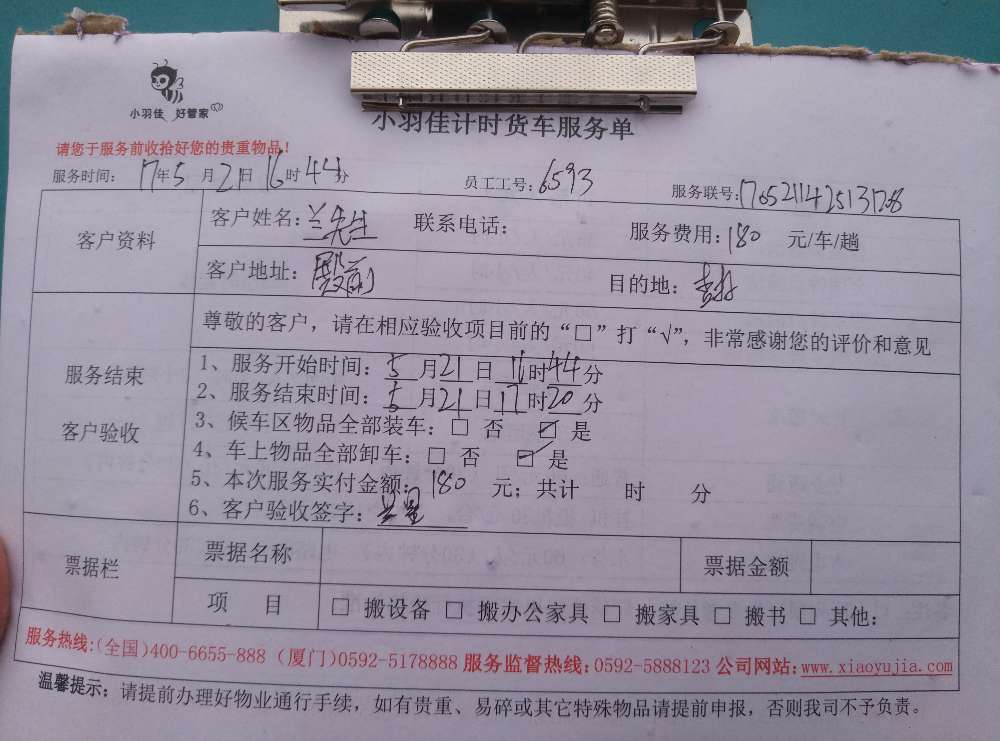 小羽佳 好管家
小羽佳计时货车服务单
请您于服务前收拾好您的贵重物品！
服务时间： 17年5月21日16时44分 员工工号：6593 服务联号：
客户资料
客户姓名：兰先生 联系电话： 服务费用：180 元/车/趟
客户地址：殿前 目的地：
尊敬的客户，请在相应验收项目前的“□”打“√”，非常感谢您的评价和意见
服务结束
客户验收
1、服务开始时间：5月21日16时44分
2、服务结束时间：5月21日17时20分
3、候车区物品全部装车：□ 否 ☑ 是
4、车上物品全部卸车：□ 否 ☑ 是
5、本次服务实付金额：180 元；共计 时 分
6、客户验收签字：
票据栏
票据名称 票据金额
项 目 □ 搬设备 □ 搬办公家具 □ 搬家具 □ 搬书 □ 其他：
服务热线：(全国)400-6655-888（厦门)0592-5178888 服务监督热线：0592-5888123 公司网站：www.xiaoyujia.com
温馨提示：请提前办理好物业通行手续，如有贵重、易碎或其它特殊物品请提前申报，否则我司不予负责。